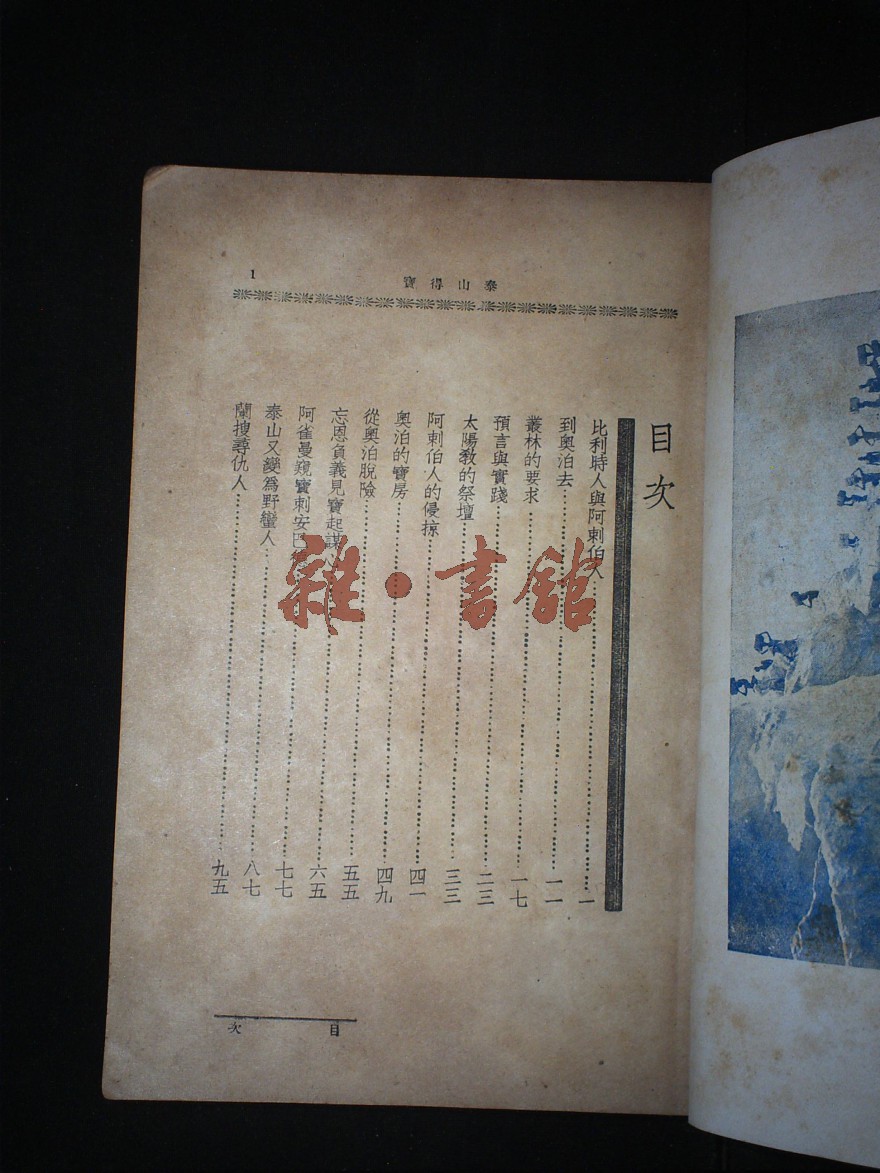 泰山得寶
1
目次
比利時人與阿剌伯人……一
到奧泊去……一一
叢林的要求……一七
預言與實踐……二三
太陽教的祭壇……三三
阿剌伯人的侵掠……四一
奧泊的寶房……四九
從奧泊脫險……五五
忘恩負義見寶起謀心……六五
阿雀曼窺寶刺安巴……七七
泰山又變爲野蠻人……八七
蘭搜尋仇人……九五
目次
雜·書館